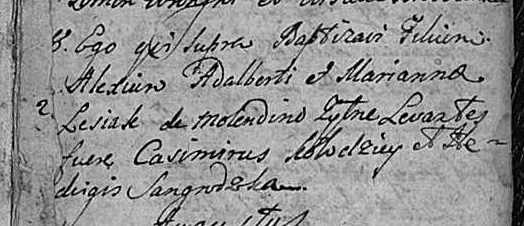 8. Ego qui supra Baptizavi Filium
Alexium Adalberti et Marianna
2 Lesiak de molendino Zytne Levantes
fuere Casimirus Kołodziey et He=
duigis
Augustus